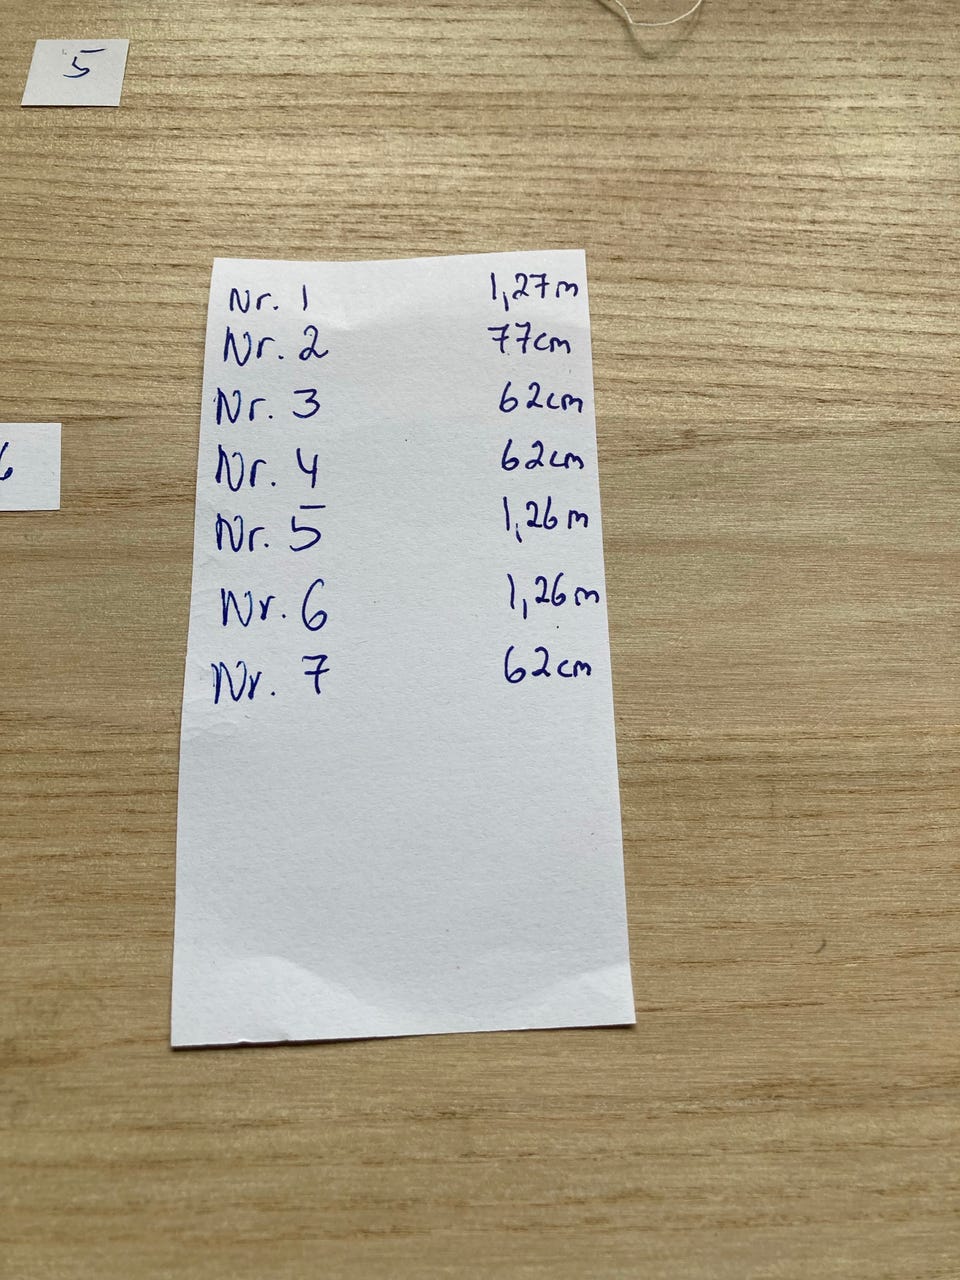 5
Nr. 1 1,27m
Nr. 2 77cm
Nr. 3 62cm
Nr. 4 62cm
6
Nr. 5 1,26m
Nr. 6 1,26m
Nr. 7 62cm